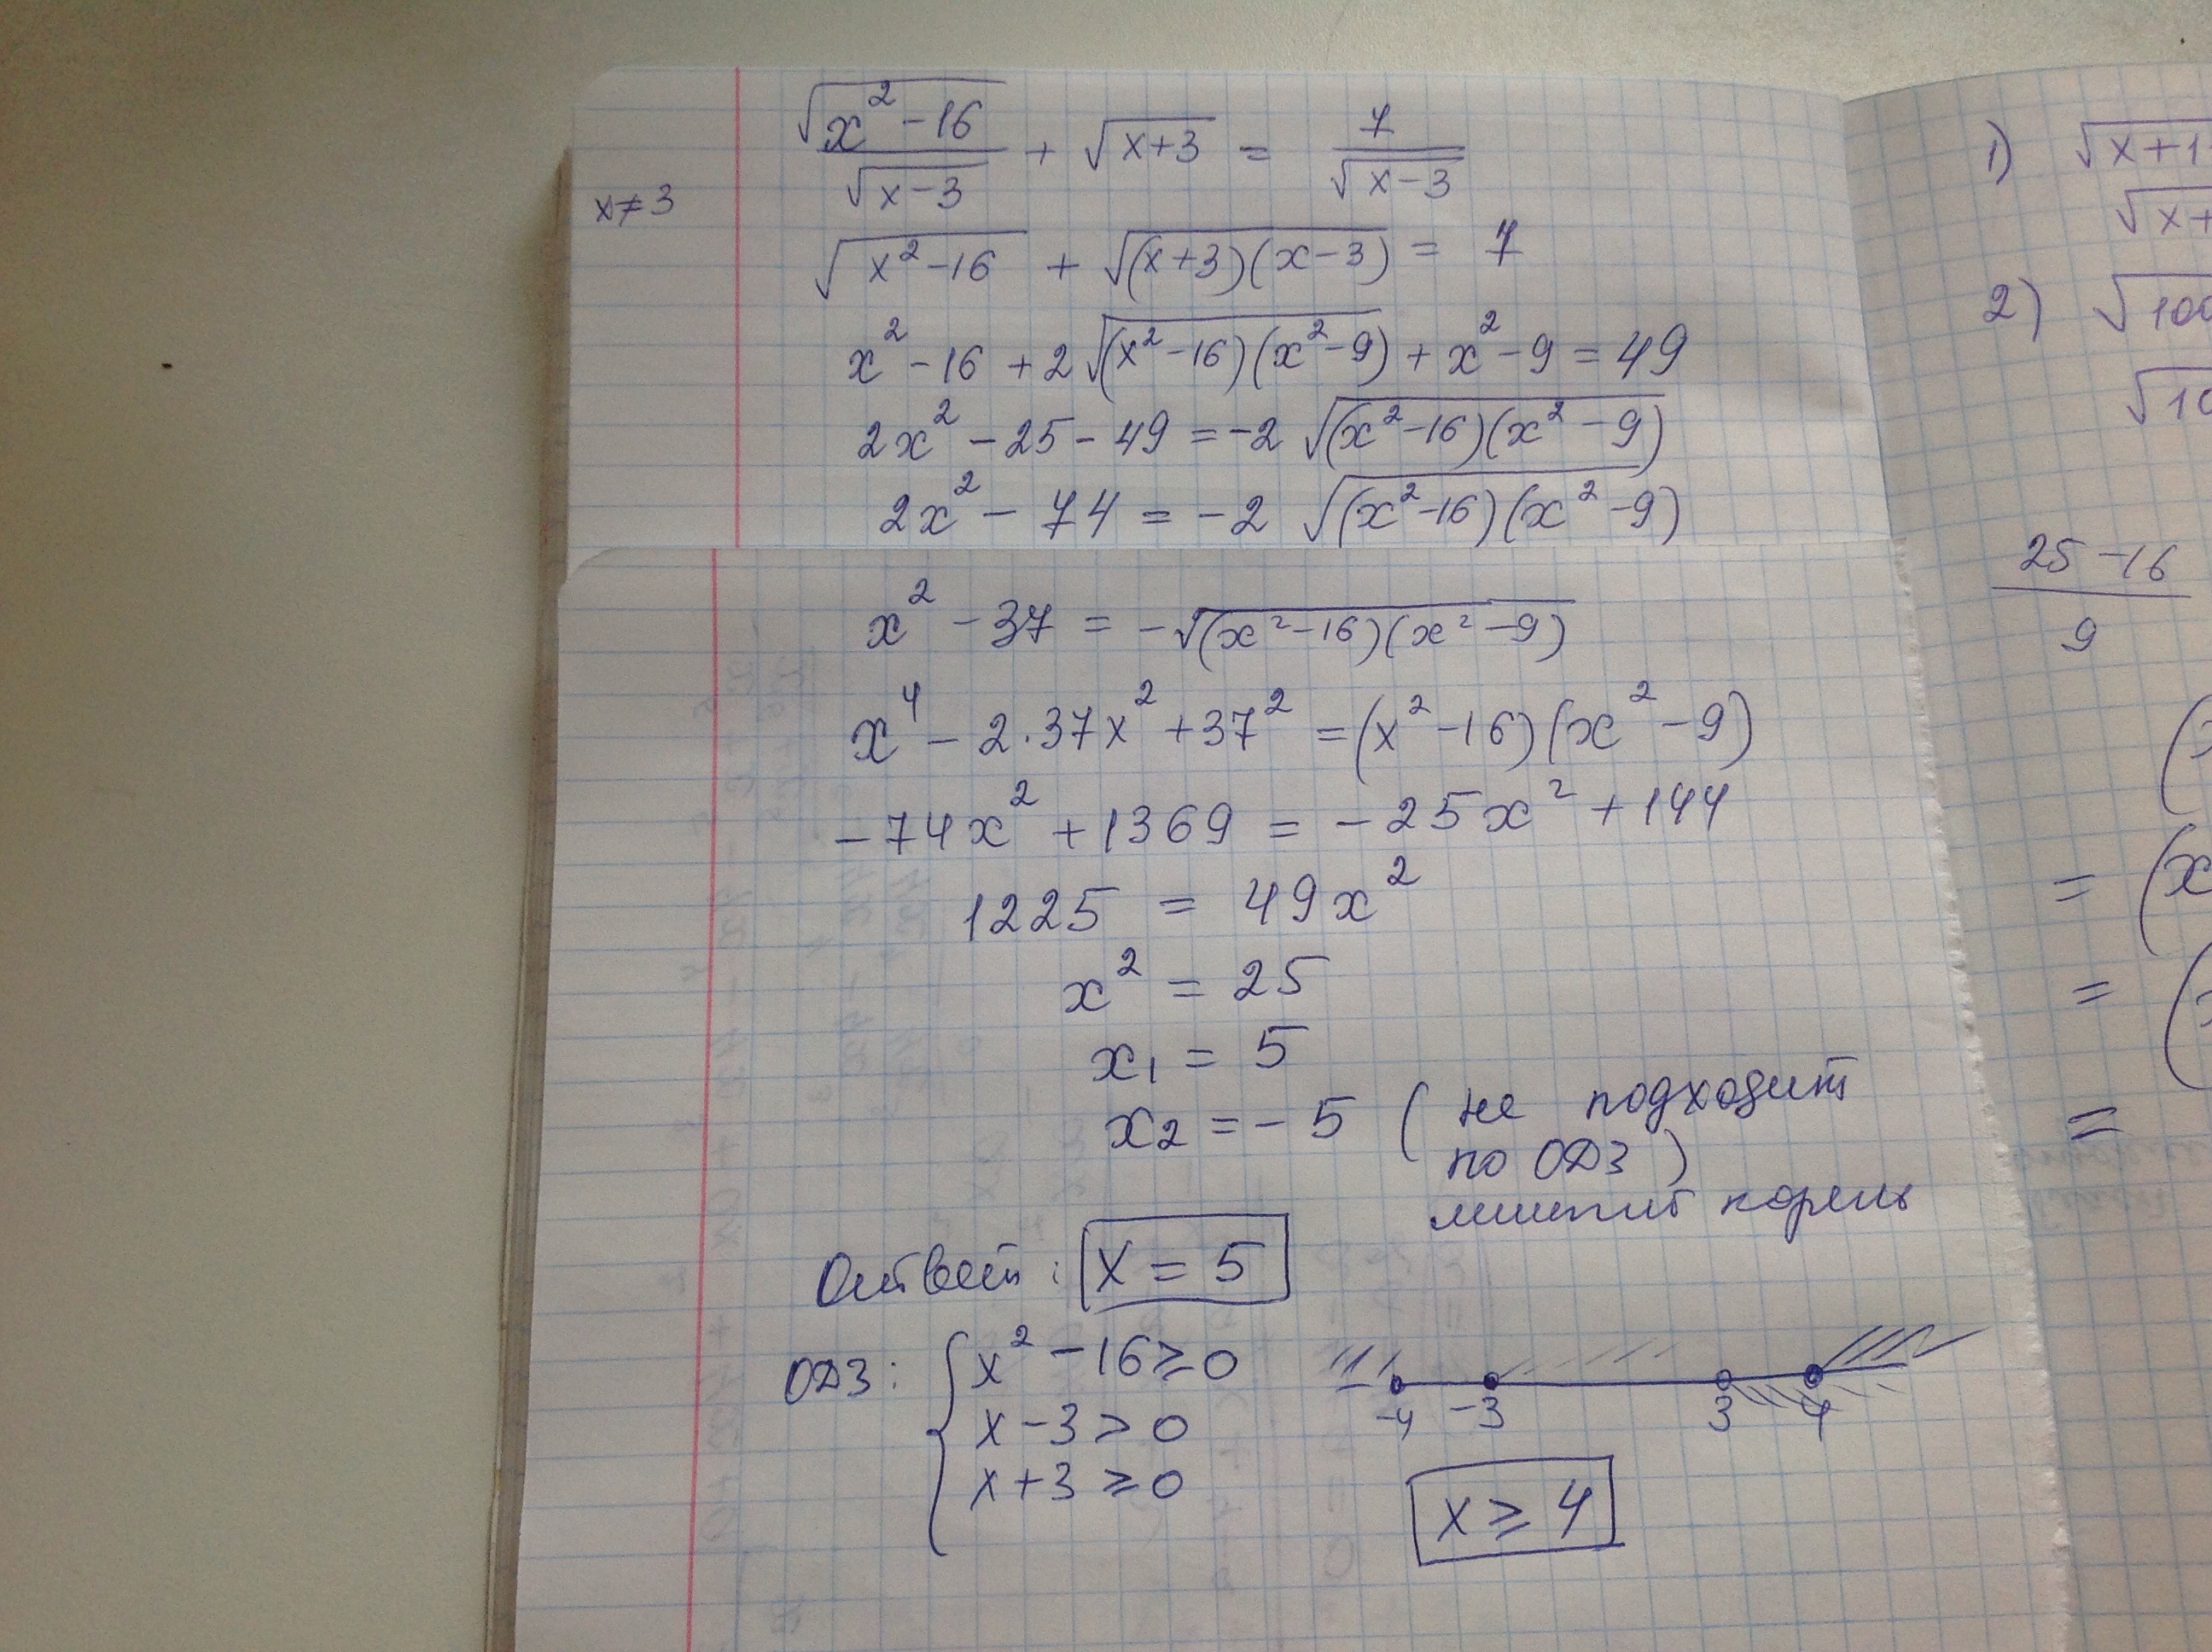 √(x² - 16) / √(x-3) + √(x+3) = 7 / √(x-3)
x ≠ 3
√(x² - 16) + √((x+3)(x-3)) = 7
x² - 16 + 2√((x² - 16)(x² - 9)) + x² - 9 = 49
2x² - 25 - 49 = -2 √((x² - 16)(x² - 9))
2x² - 74 = -2 √((x² - 16)(x² - 9))
x² - 37 = -√((x² - 16)(x² - 9))
x⁴ - 2·37x² + 37² = (x² - 16)(x² - 9)
-74x² + 1369 = -25x² + 144
1225 = 49x²
x² = 25
x₁ = 5
x₂ = -5 (не подходит
по ОДЗ)
лишний корень
Ответ: x = 5
ОДЗ: { x² - 16 ≥ 0
x - 3 > 0
x + 3 ≥ 0
-4 -3 3 4
x ≥ 4
1) √x+1
√x+
2) √100
√10
25 - 16
9
= (x
= (
=